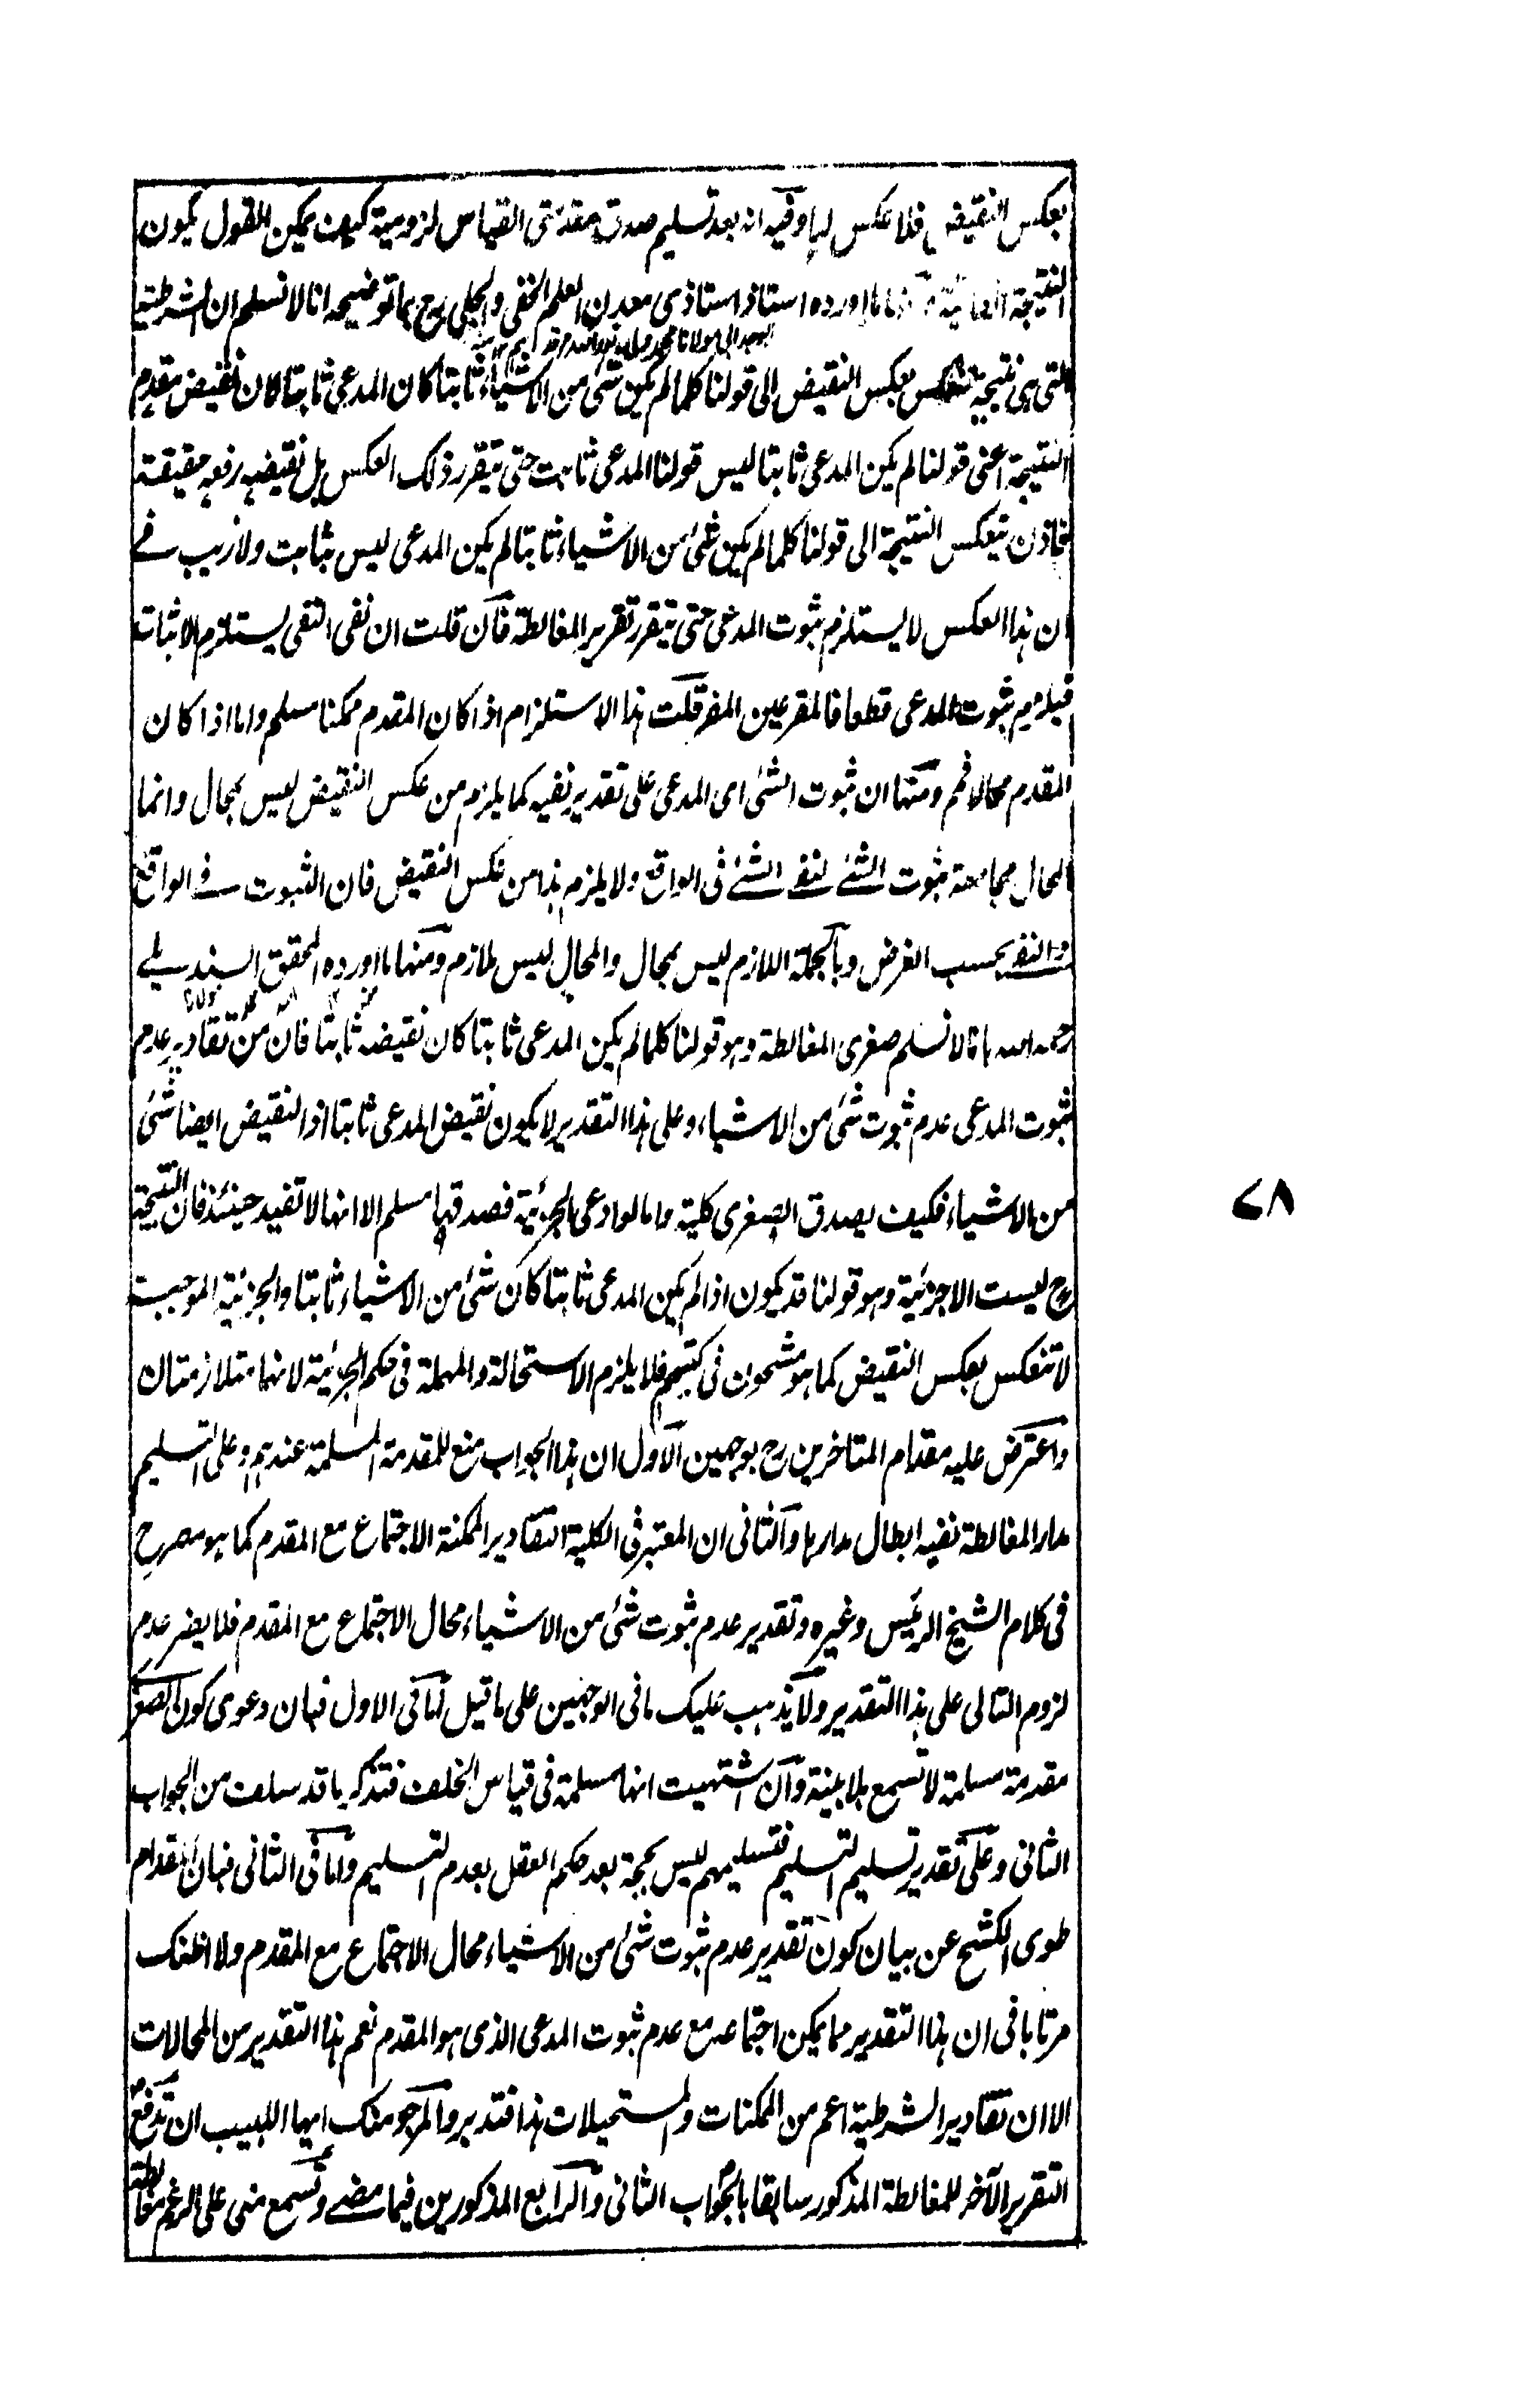 بعكس النقيض فلا عكس لها وفيه انه بعد تسليم صدق مقدمتى القياس لزومية كيف يمكن القول بكون
النتيجة اتفاقية ما اورده استاذ استاذى معدن العلم الخفى والجلى رح بما توضيحه انا لا نسلم ان الشرطية
مولانا محمد
التى هى نتيجة تنعكس بعكس النقيض الى قولنا كلما لم يكن شئ من الاشياء ثابتا كان المدعى ثابتا كان نقيض مقدم
النتيجة اعنى قولنا لم يكن المدعى ثابتا ليس قولنا المدعى ثابت حتى يتقرر ذلك العكس بل نقيضه رفعه حقيقة
فاذن ينعكس النتيجة الى قولنا كلما لم يكن شئ من الاشياء ثابتا لم يكن المدعى ليس بثابت ولا ريب فے
ان هذا العكس لا يستلزم ثبوت المدعى حتى يتقرر تقرير المغالطة فان قلت ان نفى النفى يستلزم الاثبات
فيلزم ثبوت المدعى قطعا فالمفر عين المفر قلت هذا الاستلزام اذا كان المقدم ممكنا مسلم واما اذا كان
المقدم محالا فمم ومنها ان ثبوت الشئ اى المدعى على تقدير نفيه كما يلزم من عكس النقيض ليس بمحال وانما
المحال مجامعة ثبوت الشئے لنفے الشئے فى الواقع ولا يلزم هذا من عكس النقيض فان الثبوت فے الواقع
والنفے بحسب الفرض وبالجملة اللازم ليس بمحال والمحال ليس بلازم ومنها ما اورده المحقق السنديلے
مولانا
رحمه الله بانا لا نسلم صغرى المغالطة وهو قولنا كلما لم يكن المدعى ثابتا كان نقيضه ثابتا فان من تقادير عدم
ثبوت المدعى عدم ثبوت شئ من الاشياء وعلى هذا التقدير لا يكون نقيض المدعى ثابتا اذ النقيض ايضا شئ
من الاشياء فكيف يصدق الصغرى كلية واما لو ادعى الجزئية فصدقها مسلم الا انها لا تفيد حينئذ فان النتيجة
ح ليست الا جزئية وهو قولنا قد يكون اذا لم يكن المدعى ثابتا كان شئ من الاشياء ثابتا والجزئية الموجبة
لا تنعكس بعكس النقيض كما هو مشحون فى كتبهم فلا يلزم الاستحالة والمهملة فى حكم الجزئية لانهما متلازمتان
واعترض عليه مقدام المتاخرين رح بوجهين الاول ان هذا الجواب منع للمقدمة المسلمة عندهم وعلى التسليم
مدار المغالطة نفيه ابطال مدارها والثانى ان المعتبر فى الكلية التقادير الممكنة الاجتماع مع المقدم كما هو مصرح
فى كلام الشيخ الرئيس وغيره وتقدير عدم ثبوت شئ من الاشياء محال الاجتماع مع المقدم فلا يضر عدم
لزوم التالى على هذا التقدير ولا يذهب عليك ما فى الوجهين على ما قيل اما فى الاول فبان دعوى كون الصغرے
مقدمة مسلمة لا تسمع بلا بينة وان اشتهيت انها مسلمة فى قياس الخلف فتذكر ما قد سلف من الجواب
الثانى وعلى تقدير تسليم التسليم فتسليمهم ليس بحجة بعد حكم العقل بعدم التسليم واما فى الثانى فبان المقدام
طوى الكشح عن بيان كون تقدير عدم ثبوت شئ من الاشياء محال الاجتماع مع المقدم ولا اظنك
مرتابا فى ان هذا التقدير مما يمكن اجتماعه مع عدم ثبوت المدعى الذى هو المقدم نعم هذا التقدير من المحالات
الا ان تقادير الشرطية اعم من الممكنات والمستحيلات هذا فتدبر والمرجو منك ايها اللبيب ان تدفع
التقرير الآخر للمغالطة المذكور سابقا بالجواب الثانى والرابع المذكورين فيما مضے وتسمع منى على الرغم مغالطة
٧٨